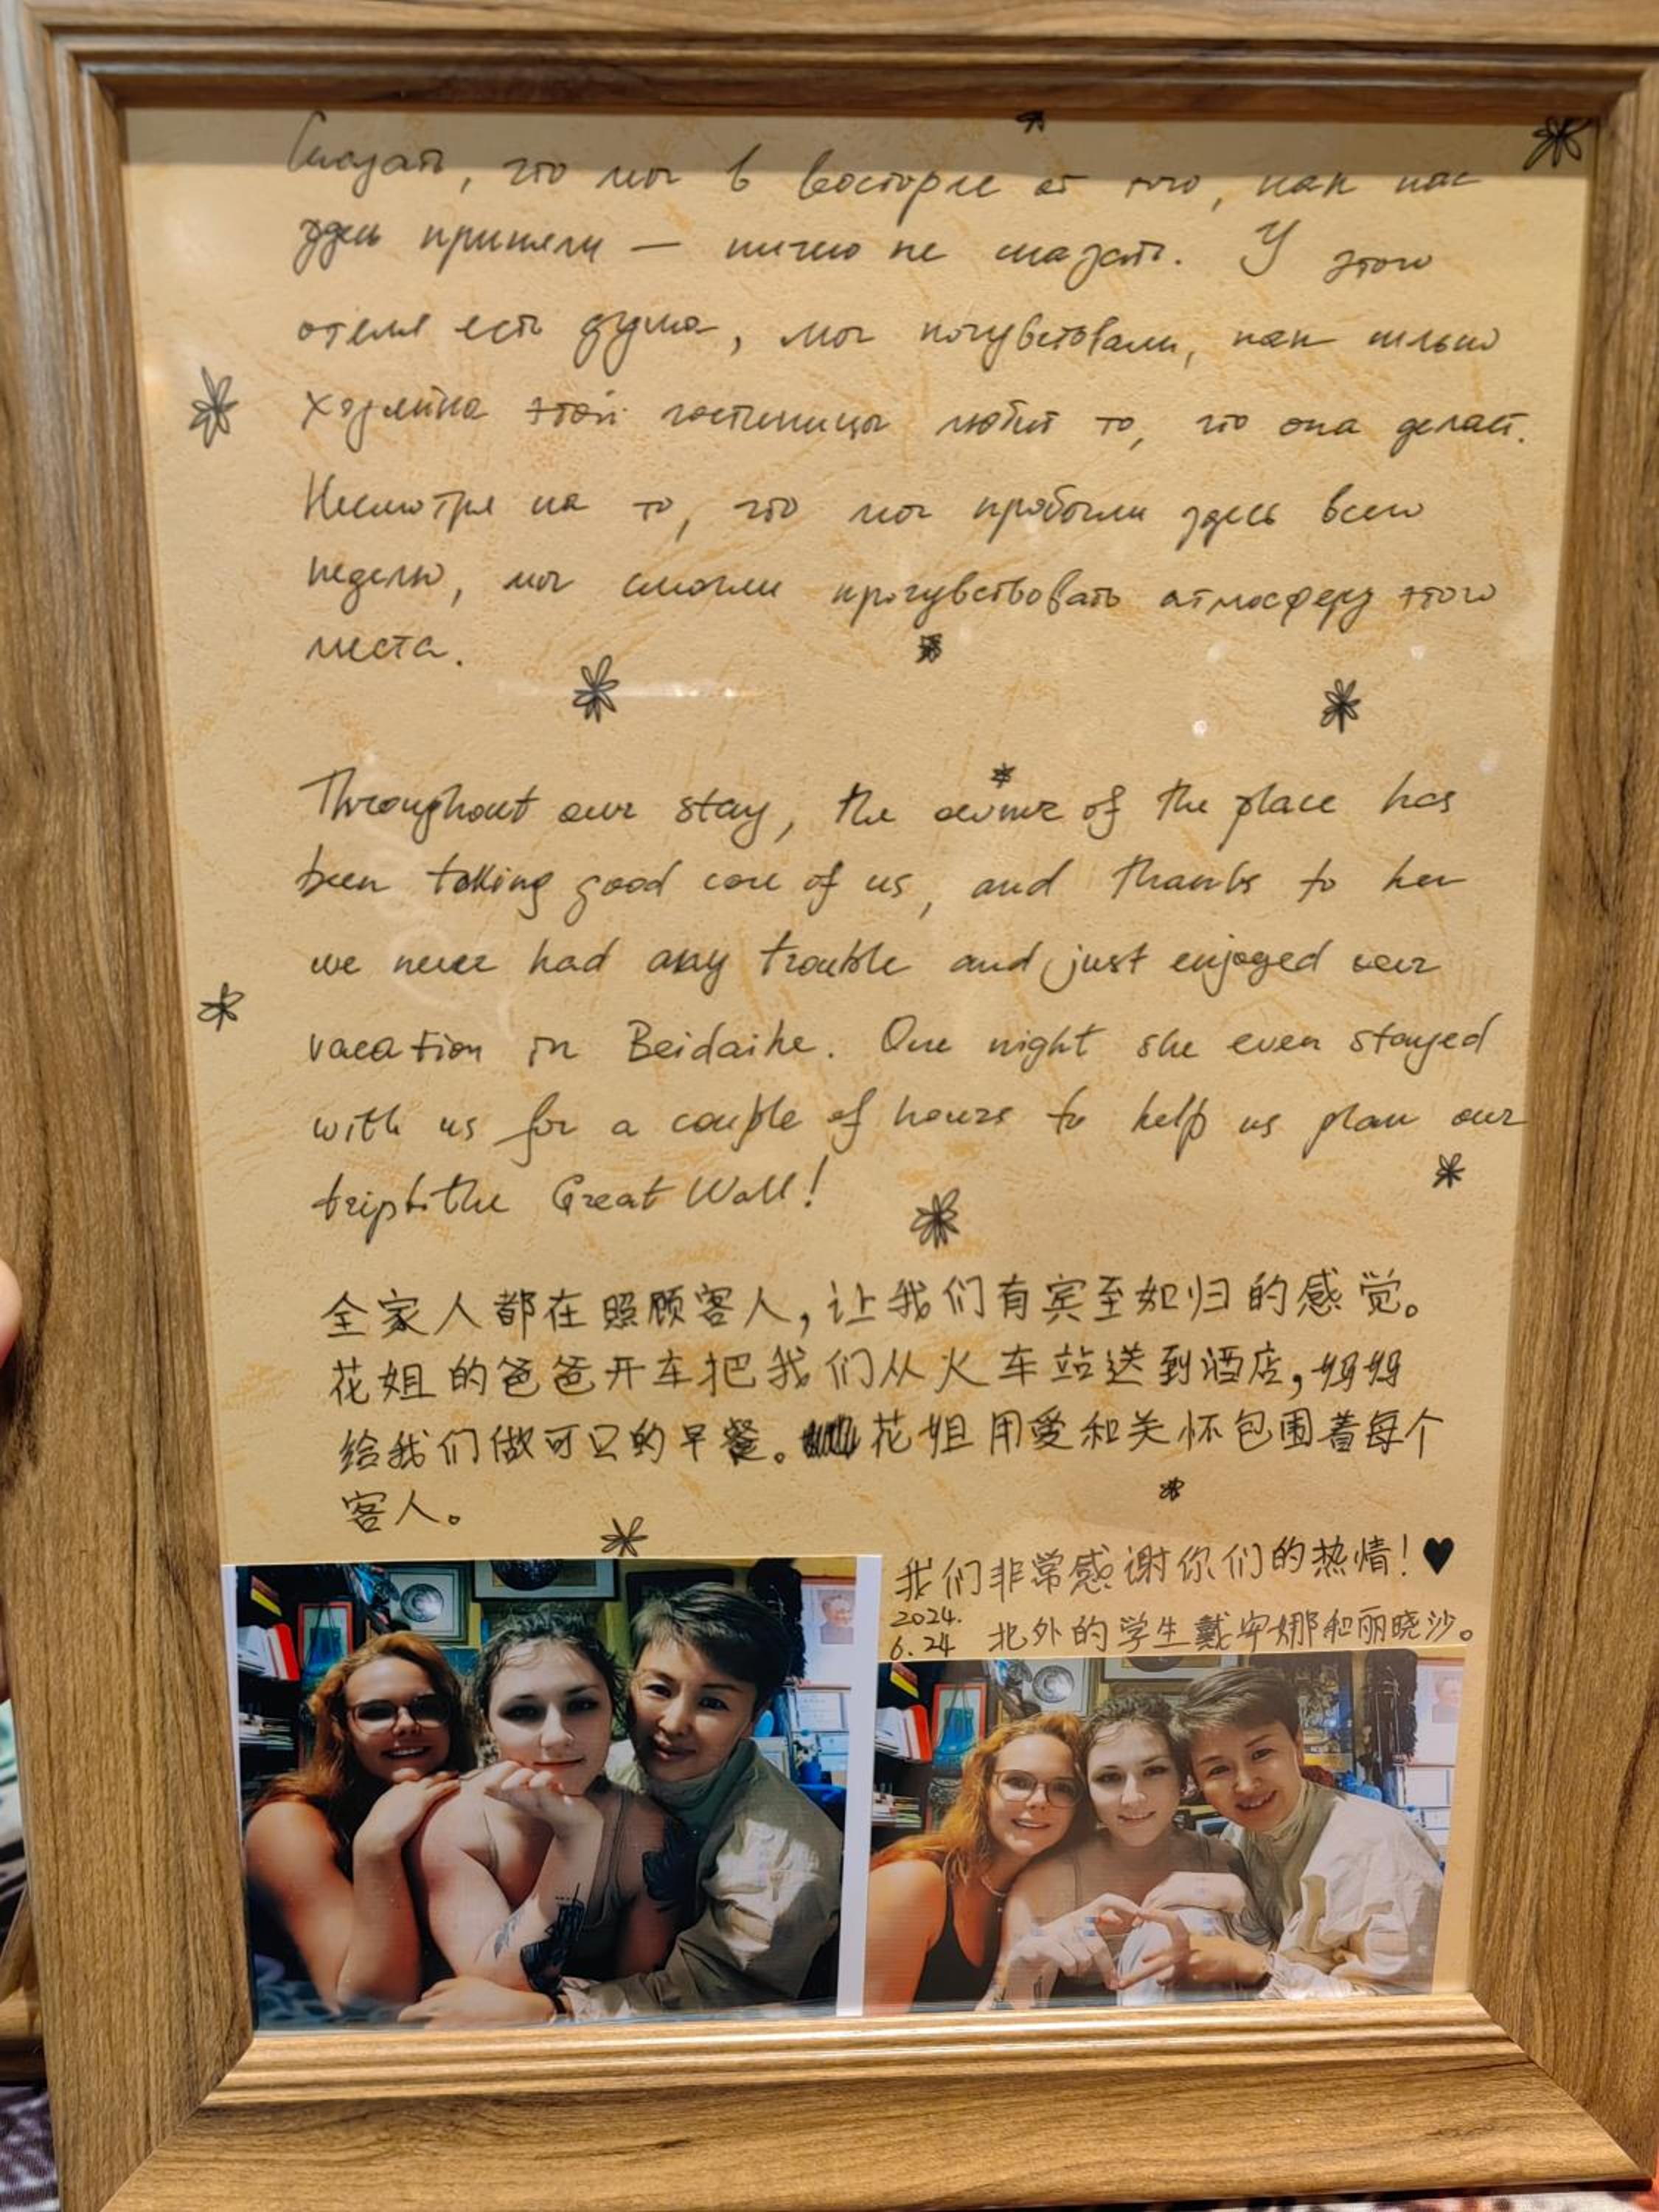 Сказать, что мы в восторге от того, как нас
здесь приняли — ничего не сказать. У этого
отеля есть душа, мы почувствовали, как сильно
хозяйка этой гостиницы любит то, что она делает.
Несмотря на то, что мы пробыли здесь всего
неделю, мы смогли прочувствовать атмосферу этого
места.
Throughout our stay, the owner of the place has
been taking good care of us, and thanks to her
we never had any trouble and just enjoyed our
vacation in Beidaihe. One night she even stayed
with us for a couple of hours to help us plan our
trip to the Great Wall!
全家人都在照顾客人，让我们有宾至如归的感觉。
花姐的爸爸开车把我们从火车站送到酒店，妈妈
给我们做可口的早餐。花姐用爱和关怀包围着每个
客人。
我们非常感谢你们的热情！♥
2024.
6.24 北外的学生戴安娜和丽晓沙。